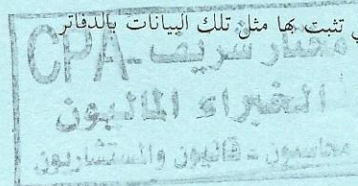 تثبت بها مثل تلك البيانات بالدفاتر
مختار شريف - CPA
الخبراء الماليون
محاسبون - قانونيون والمستشارون